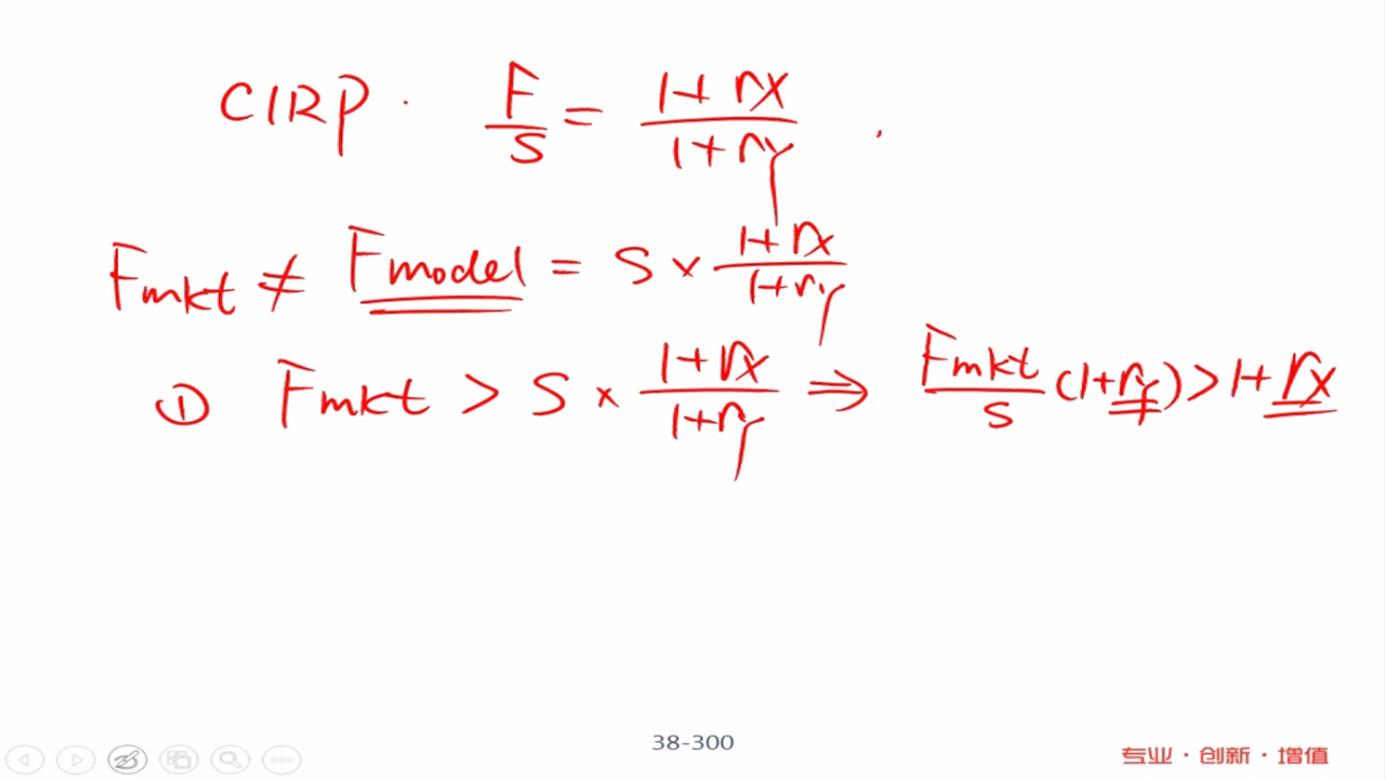 CIRP. F/S = (1+rx)/(1+ry).
Fmkt ≠ Fmodel = S × (1+rx)/(1+ry)
① Fmkt > S × (1+rx)/(1+ry) ⇒ Fmkt/S (1+ry) > 1+rx
38-300
专业·创新·增值